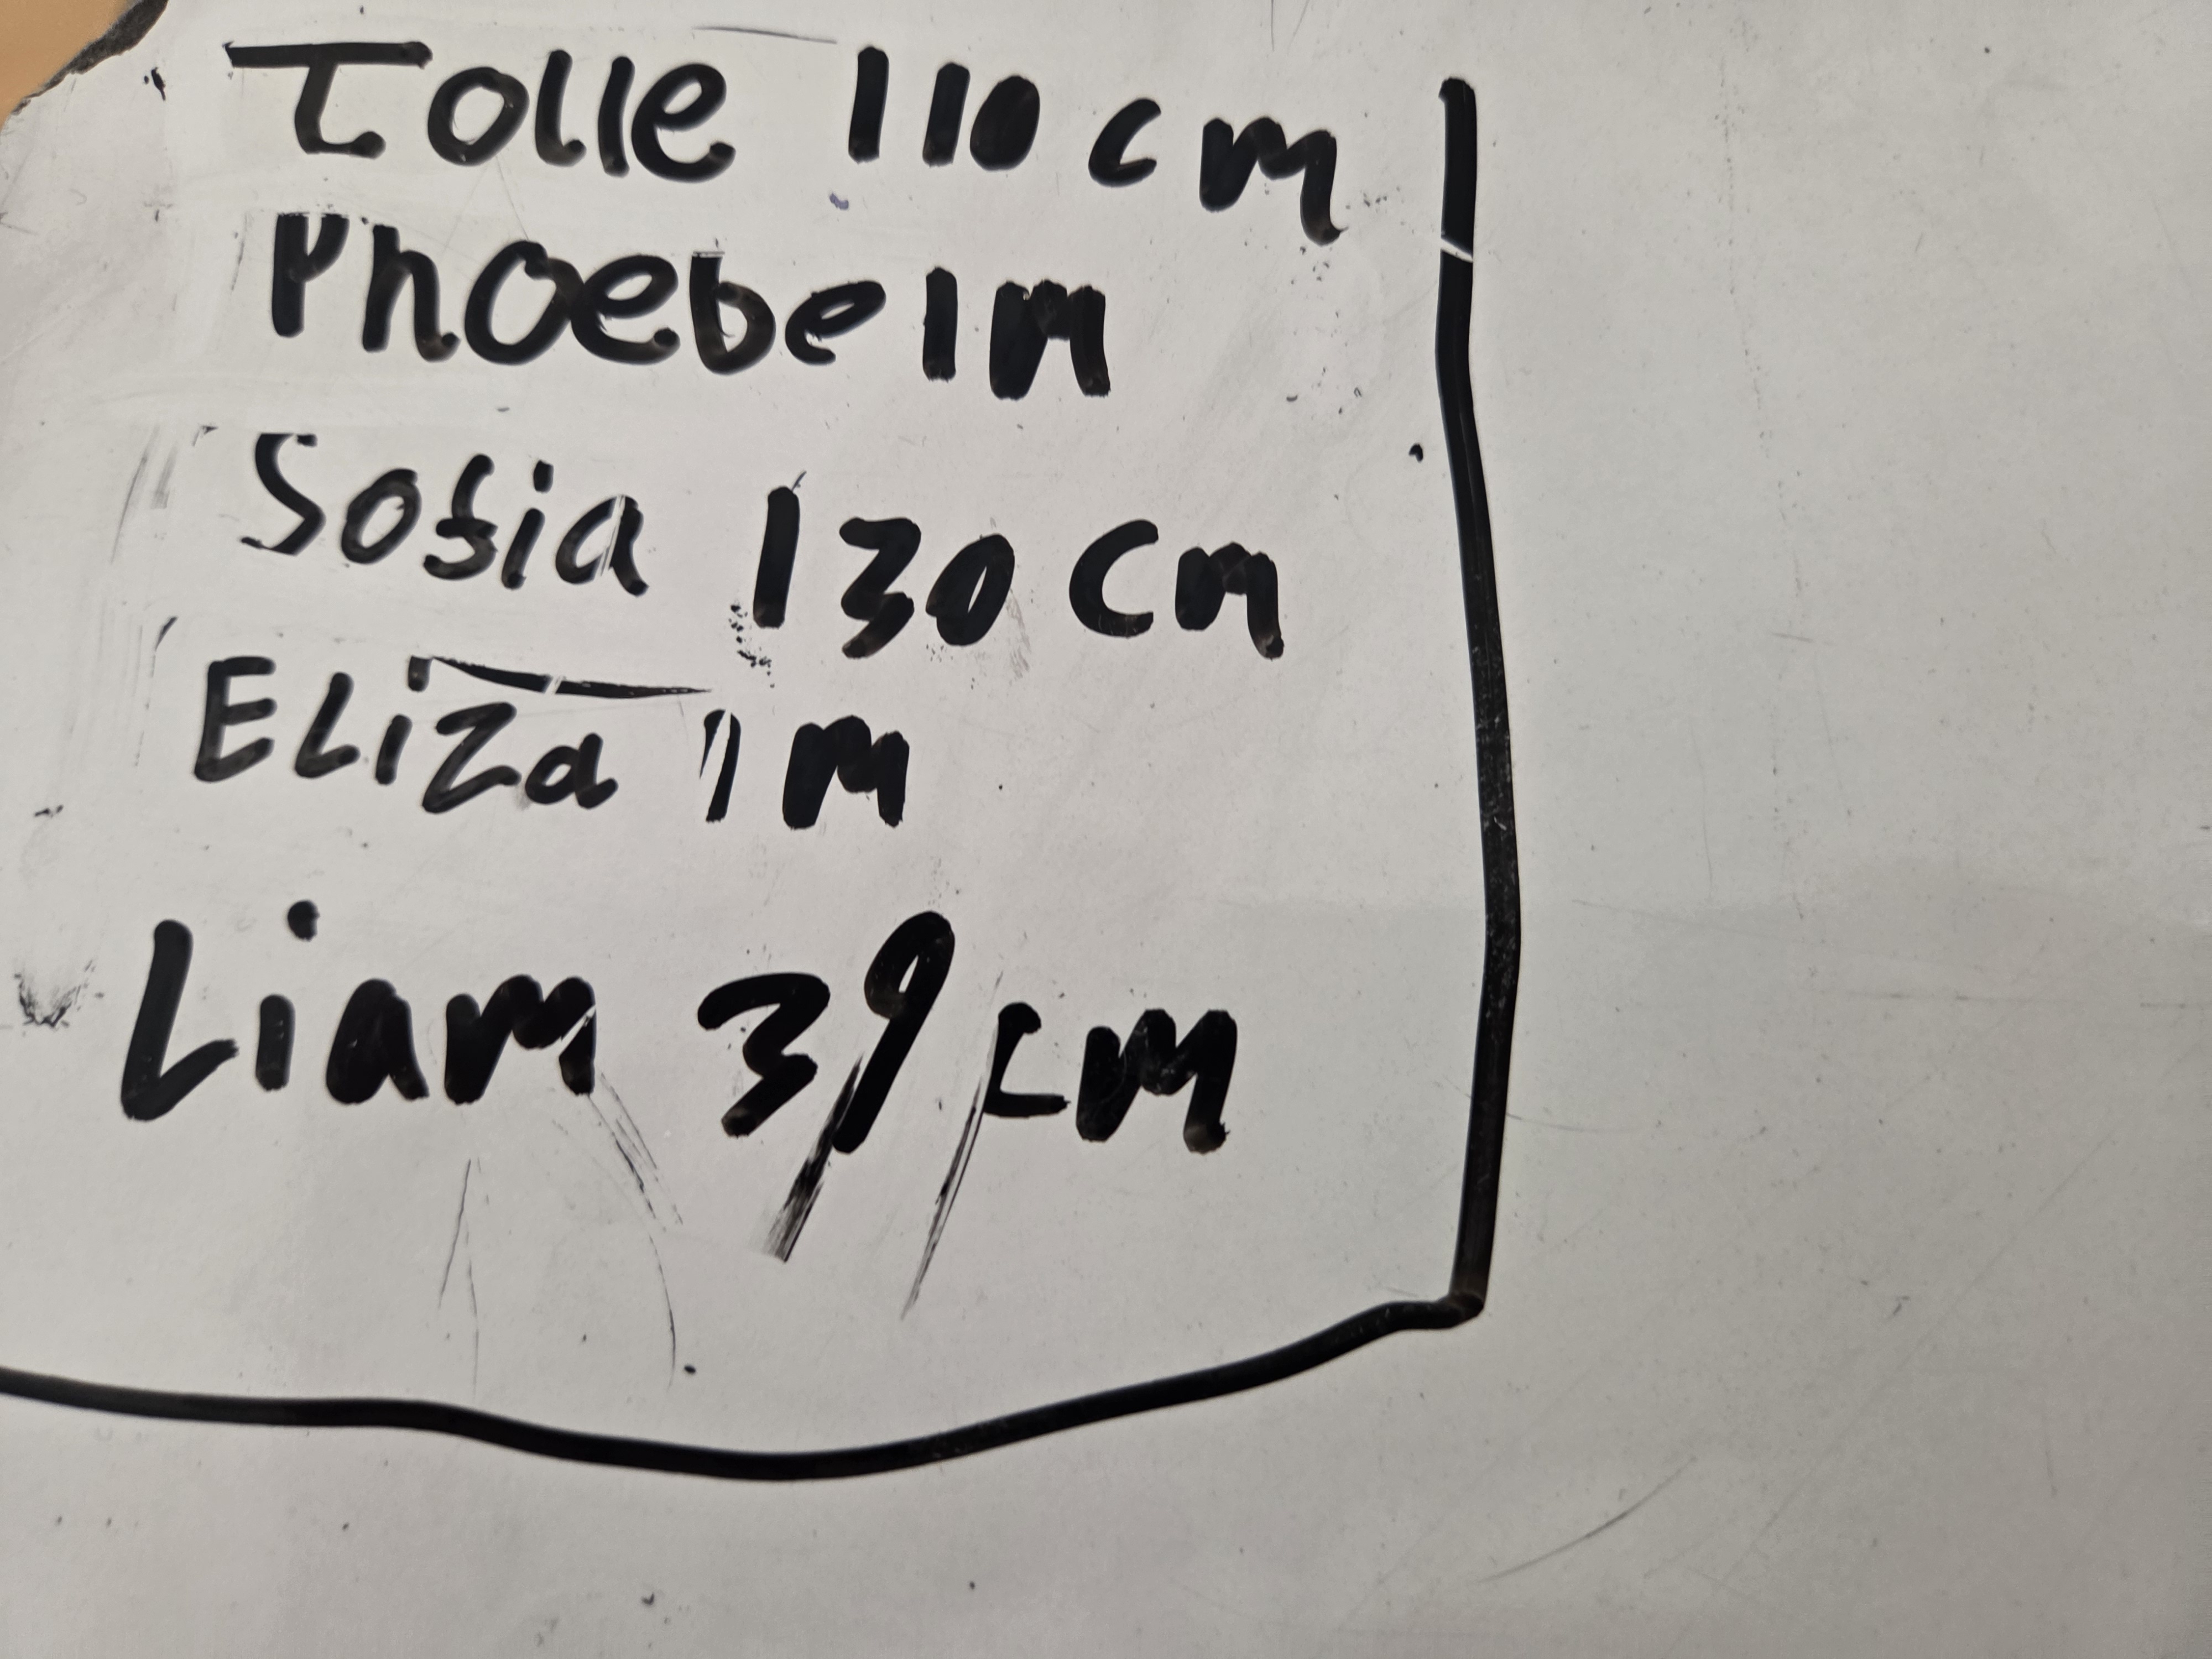 Tolle 110 cm
Phoebe 1m
Sofia 130 cm
ELiza 1m
Liam 39 cm